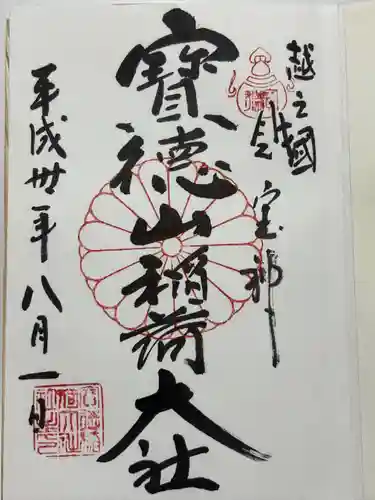 越之國
宝神
寳徳山稲荷大社
平成卅年八月一日